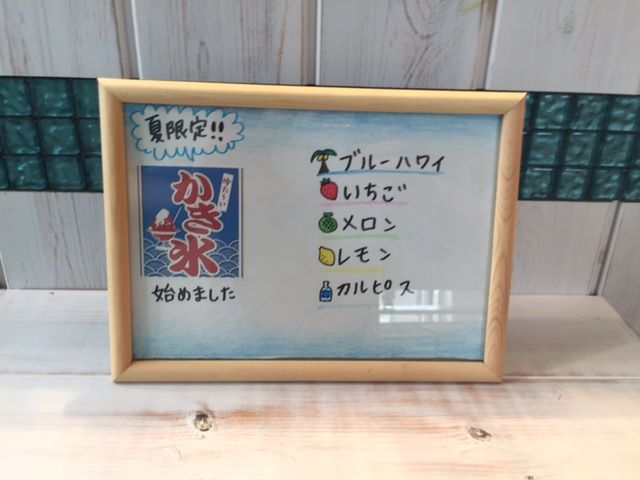 夏限定!!
かき氷
始めました
ブルーハワイ
いちご
メロン
レモン
カルピス